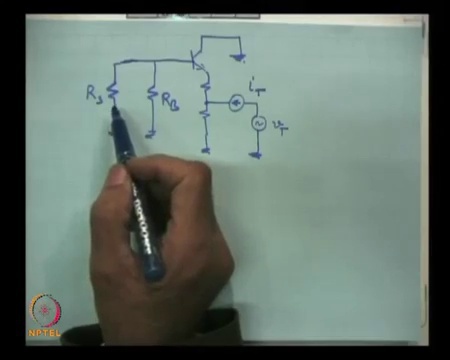 R_s
R_B
i_T
v_T
NPTEL